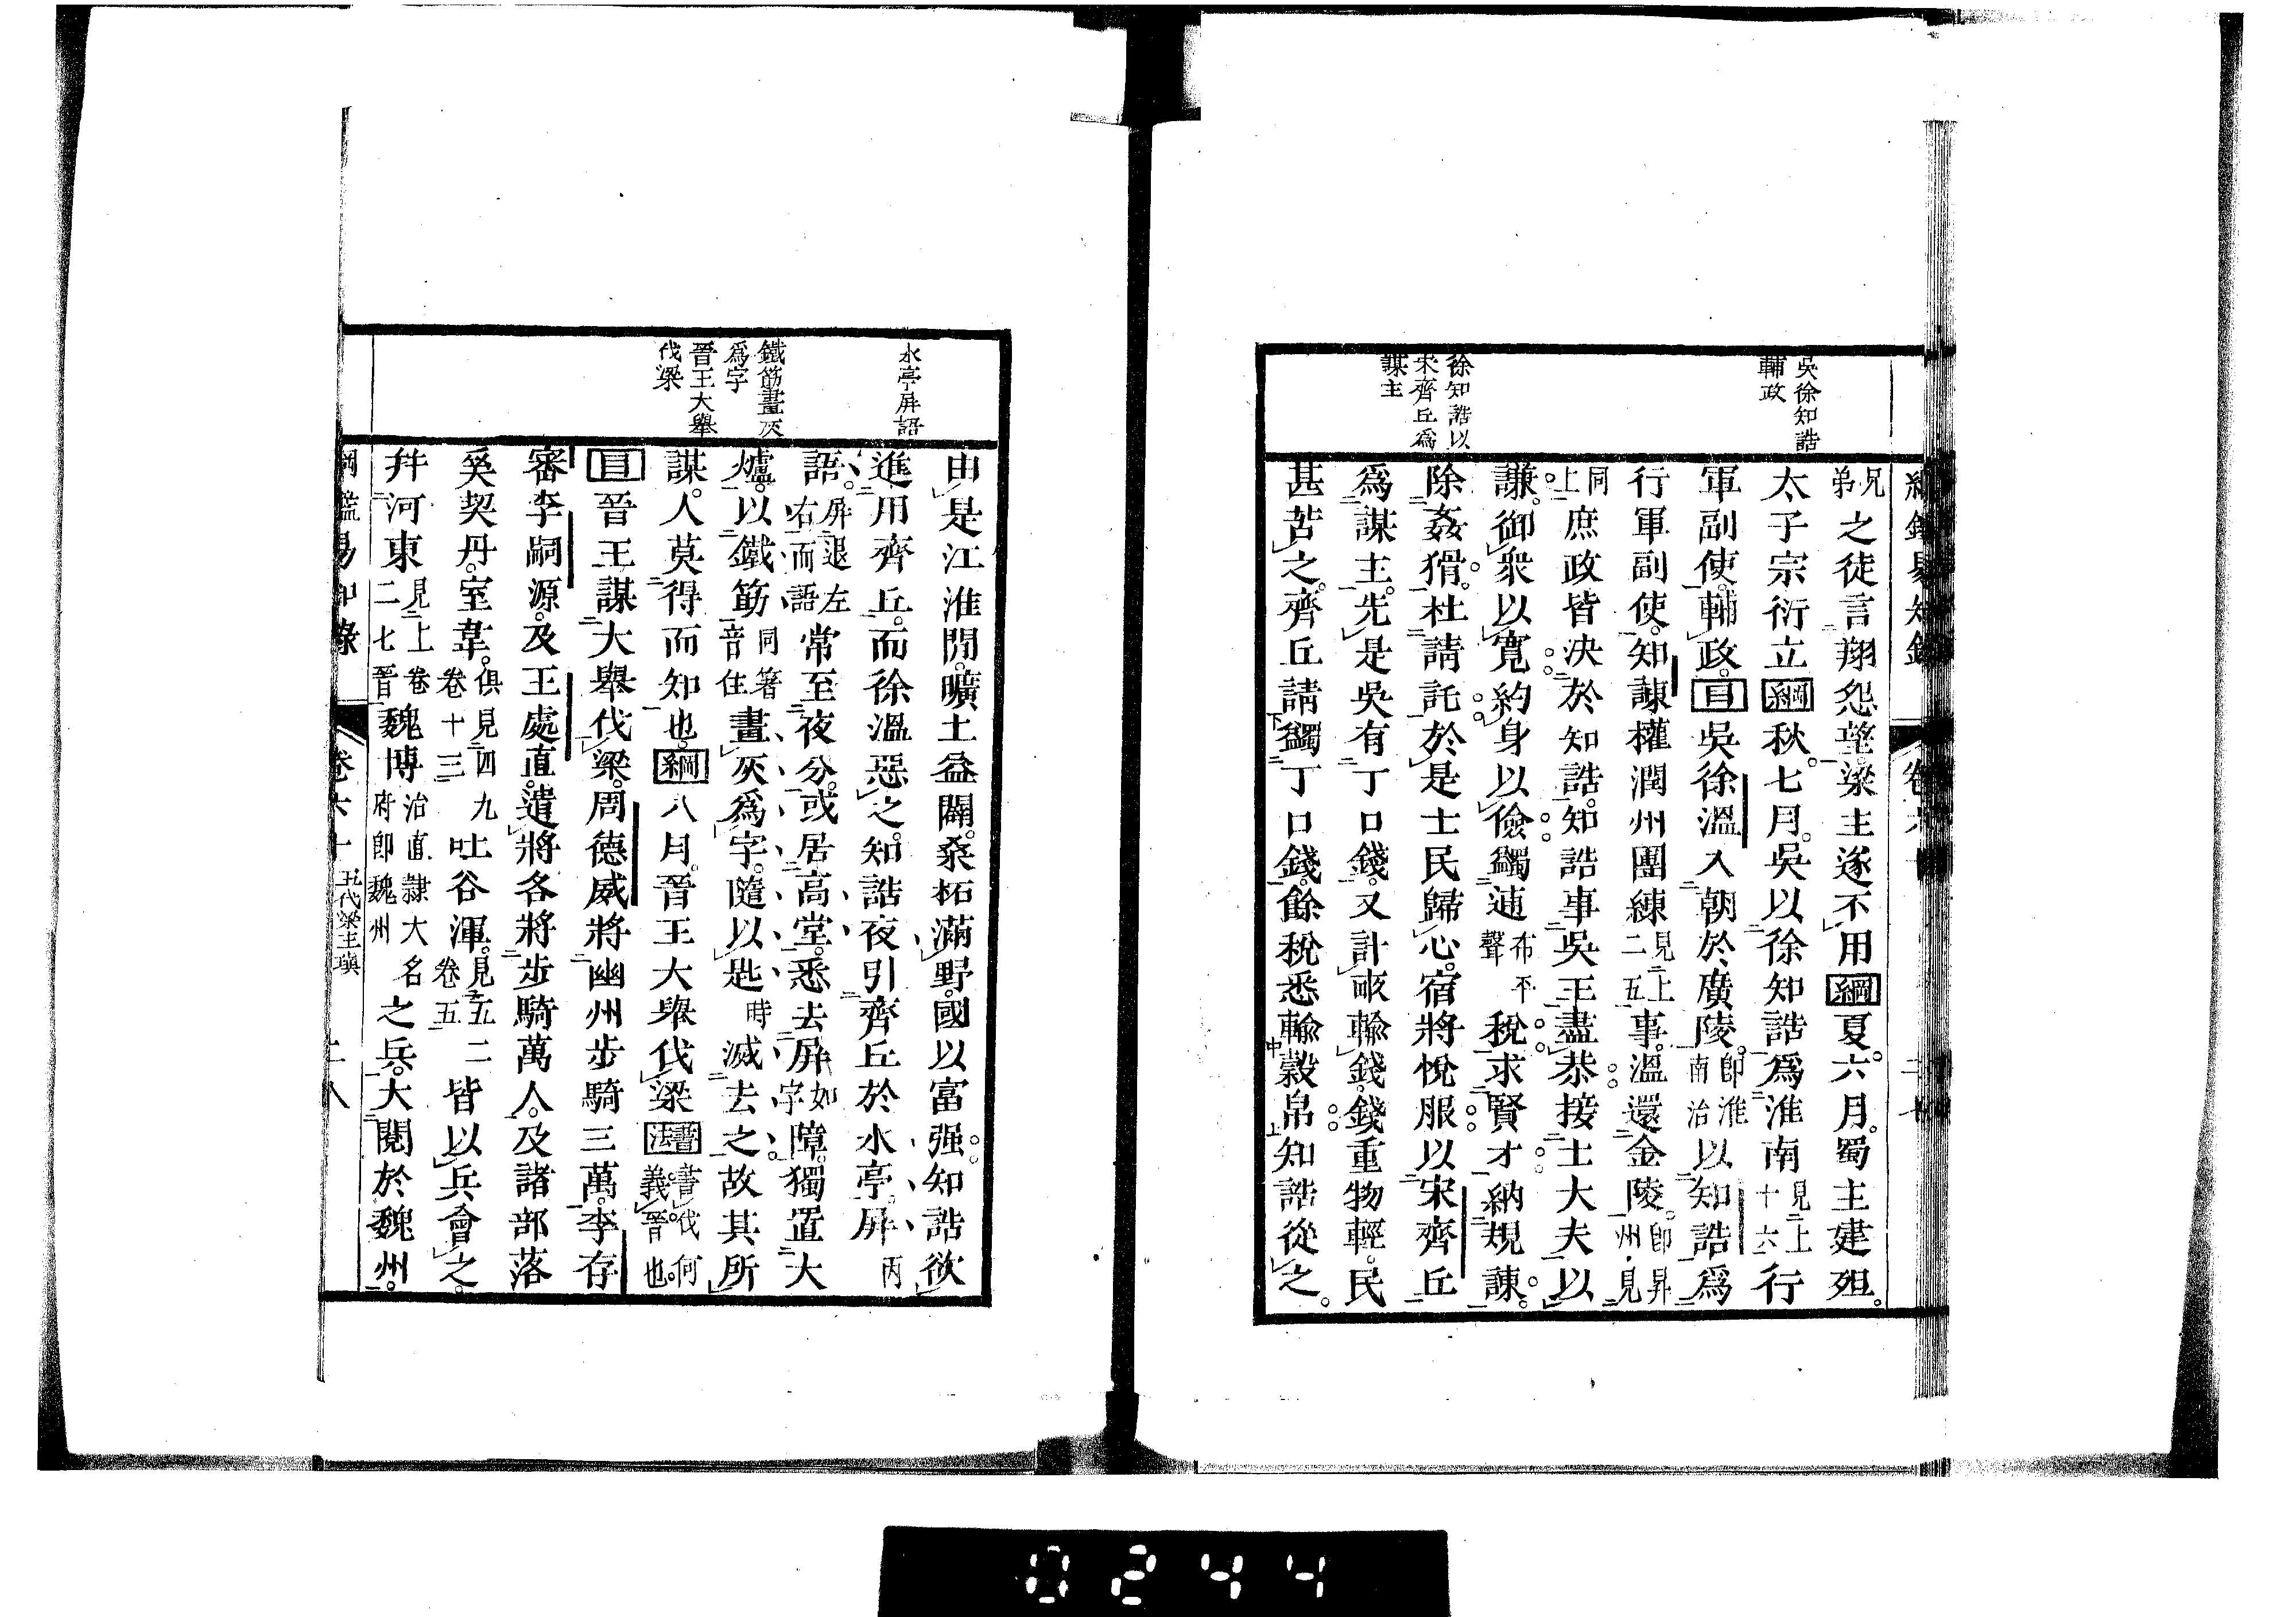 吳徐知誥
輔政
徐知誥以
宋齊丘爲
謀主
兄弟之徒言翔怨望梁主遂不用綱夏六月蜀主建殂
太子宗衍立綱秋七月吳以徐知誥爲淮南見上十六行
軍副使輔政目吳徐溫入朝於廣陵卽淮南治以知誥爲
行軍副使知諫權潤州團練見上二五事溫還金陵卽昇州見
同上庶政皆決於知誥知誥事吳王盡恭接士大夫以
謙御衆以寬約身以儉蠲逋布平聲稅求賢才納規諫
除姦猾杜請託於是士民歸心宿將悅服以宋齊丘
爲謀主先是吳有丁口錢又計畝輸錢錢重物輕民
甚苦之齊丘請蠲丁口錢餘稅悉輸穀帛知誥從之
水亭屏語
鐵筯畫灰
爲字
晉王大舉
伐梁
由是江淮閒曠土益闢桑柘滿野國以富强知誥欲
進用齊丘而徐溫惡之知誥夜引齊丘於水亭屏丙
語屏退左右而語常至夜分或居高堂悉去屏如字障獨置大
爐以鐵筯同箸音住畫灰爲字隨以匙時滅去之故其所
謀人莫得而知也綱八月晉王大舉伐梁書法書伐何義晉也
目晉王謀大舉伐梁周德威將幽州步騎三萬李存
審李嗣源及王處直遣將各將步騎萬人及諸部落
奚契丹室韋俱見四九卷十三吐谷渾見五二卷五皆以兵會之
幷河東見上卷二七晉魏博治直隷大名府卽魏州之兵大閱於魏州
綱鑑易知錄 卷六十 五代梁主瑱 二八